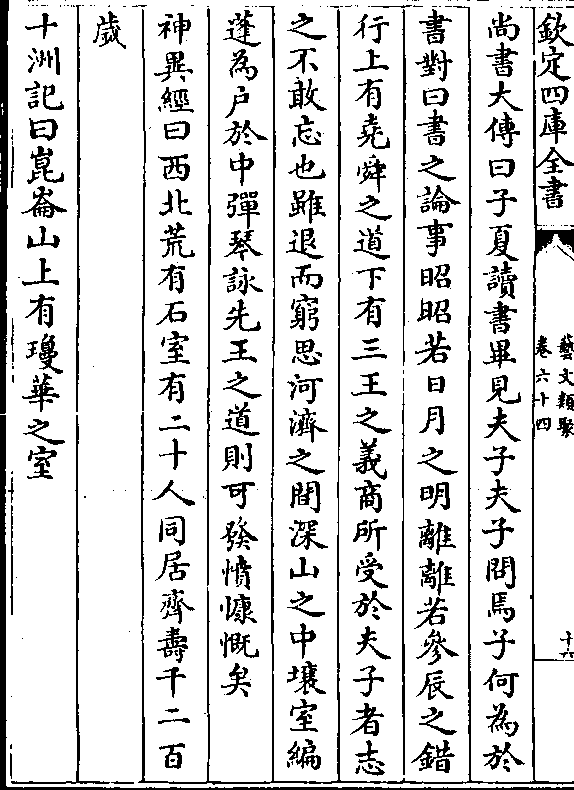 欽定四庫全書
藝文類聚
卷六十四
十六
尚書大傳曰子夏讀書畢見夫子夫子問焉子何為於
書對曰書之論事昭昭若日月之明離離若參辰之錯
行上有堯舜之道下有三王之義商所受於夫子者志
之不敢忘也雖退而窮思河濟之間深山之中壤室編
蓬為戶於中彈琴詠先王之道則可發憤慷慨矣
神異經曰西北荒有石室有二十人同居齊壽千二百
歲
十洲記曰崑崙山上有瓊華之室